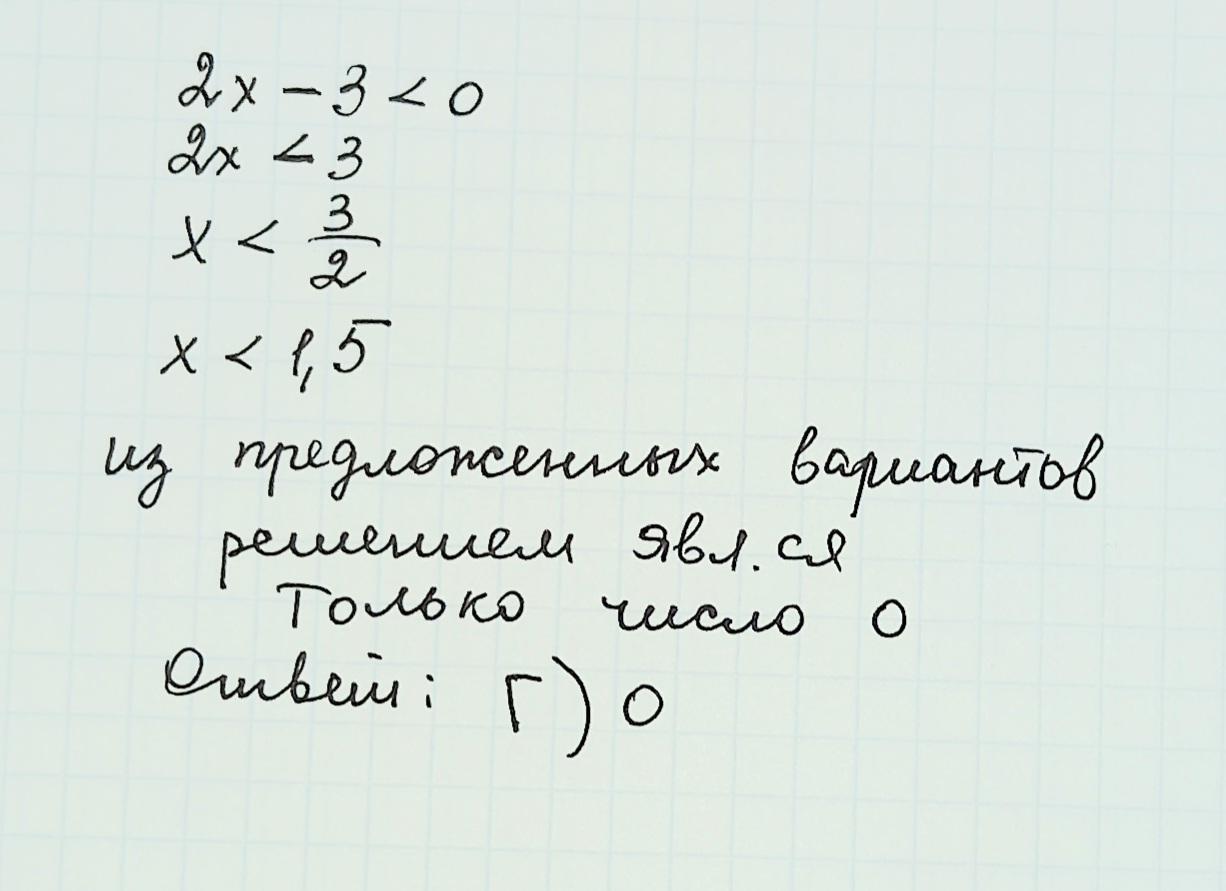 2x - 3 < 0
2x < 3
x < 3/2
x < 1,5
из предложенных вариантов
решением явл.ся
только число 0
Ответ: Г) 0